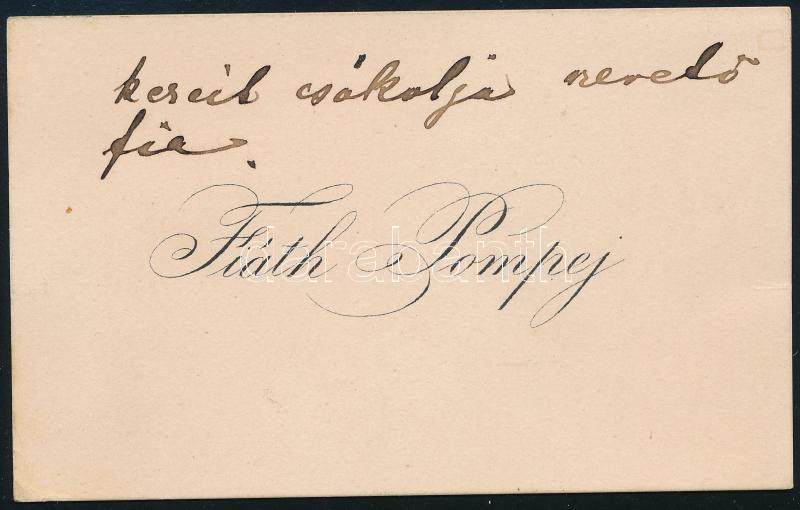 kezeit csókolja szerető
fia.
Fiáth Pompej
darabanth